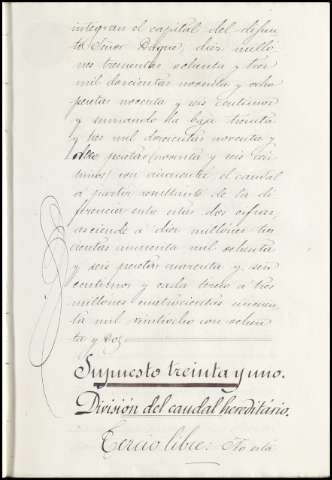 integran el capital del difun-
to Señor Duque, diez millo-
nes trescientas setenta y tres
mil doscientas noventa y ocho
pesetas noventa y seis centimos
y sumando la baja treinta
y tres mil doscientas noventa y
ocho pesetas (noventa y seis cén-
timos) con                el caudal
a partir constituido de la di-
ferencia entre estas dos cifras,
asciende a diez millones tres-
cientas cuarenta mil setenta
y seis pesetas cuarenta y seis
centimos y cada tercio a tres
millones cuatrocientas cuaren-
ta mil veintiocho con seten-
ta y dos
Supuesto treinta y uno.
División del caudal hereditario.
Tercio libre: No está